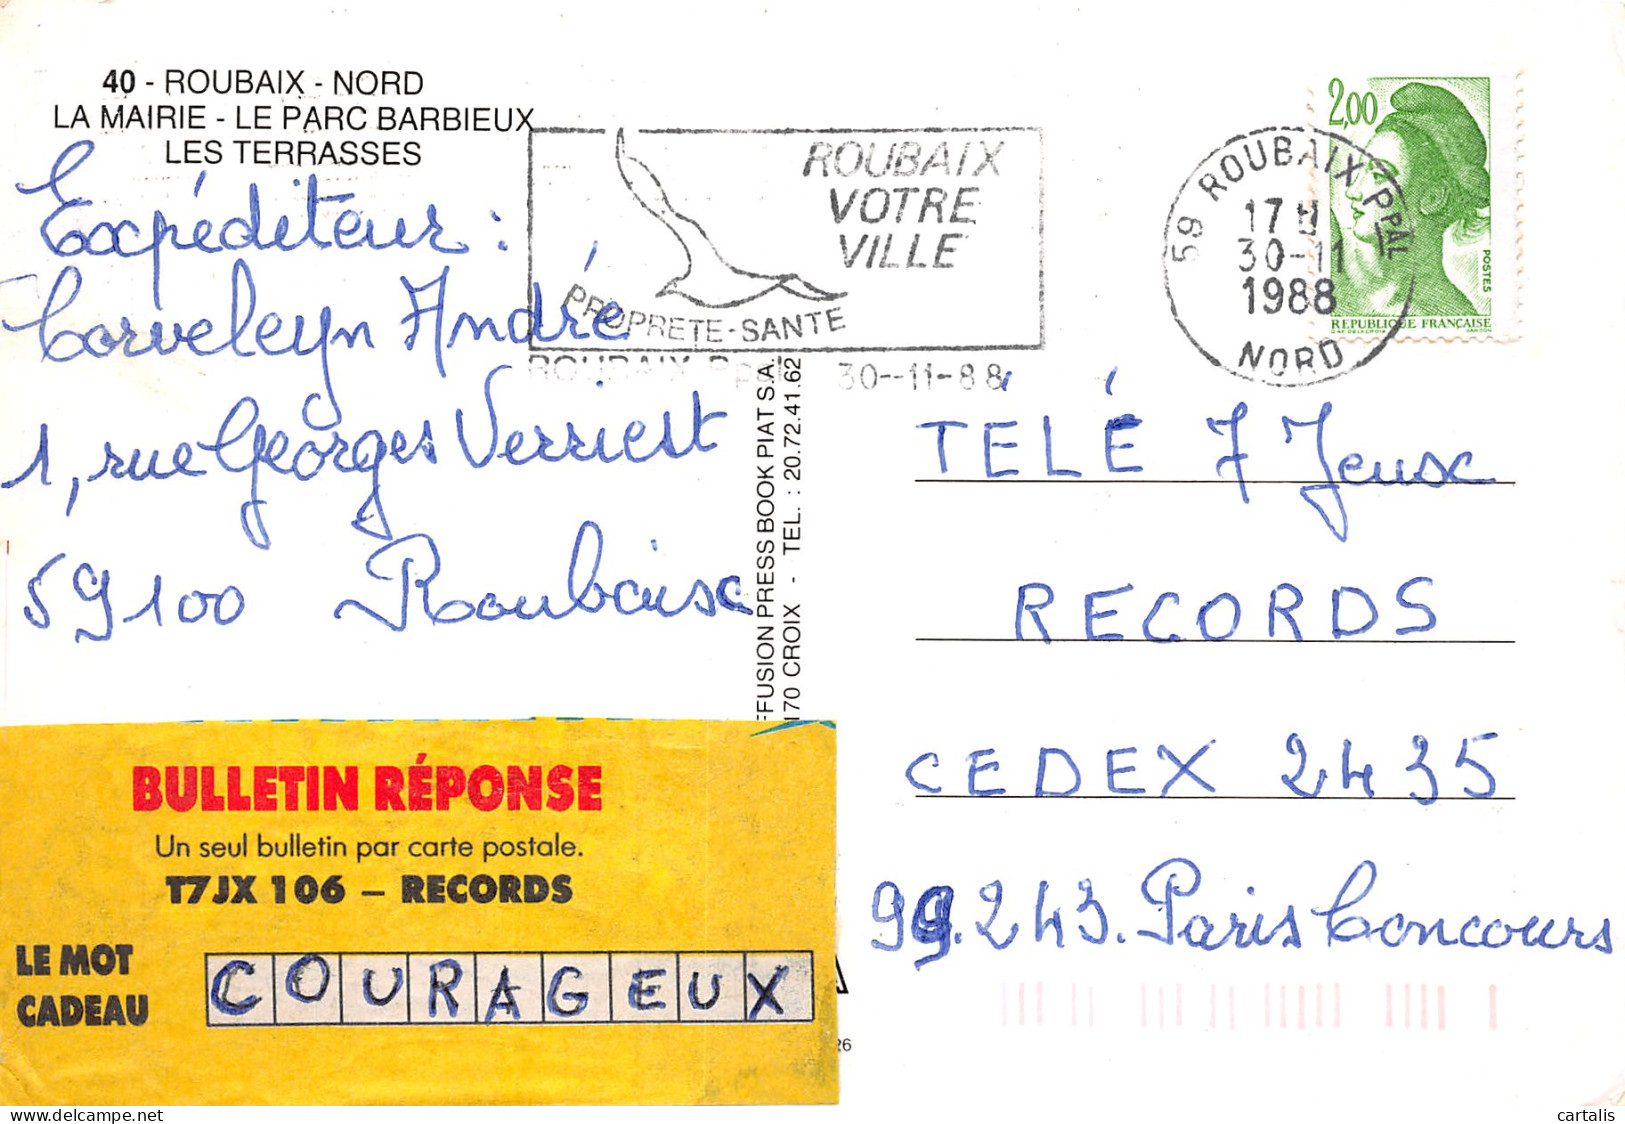 40 - ROUBAIX - NORD
LA MAIRIE - LE PARC BARBIEUX
LES TERRASSES
Expéditeur :
Corveleyn André
1, rue Georges Verriest
59100 Roubaix
ROUBAIX
VOTRE
VILLE
PROPRETE-SANTE
ROUBAIX Ppal 30-11-88
59 ROUBAIX PPAL
17 H
30-11
1988
NORD
2,00
POSTES
REPUBLIQUE FRANÇAISE
FFUSION PRESS BOOK PIAT S.A.
170 CROIX - TEL. : 20.72.41.62
TÉLÉ 7 Jeux
RECORDS
CEDEX 2435
99.243. Paris Concours
BULLETIN RÉPONSE
Un seul bulletin par carte postale.
T7JX 106 – RECORDS
LE MOT
CADEAU
COURAGEUX
26
delcampe.net
cartalis